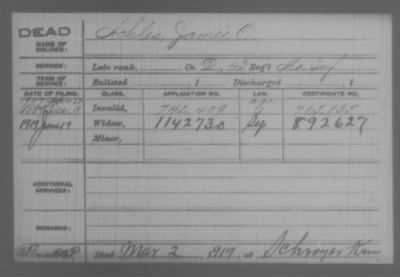 DEAD
NAME OF SOLDIER:
Ackles, James O.
SERVICE: Late rank, Co. D, Reg't Inf
TERM OF SERVICE: Enlisted , 1 Discharged , 1
DATE OF FILING. CLASS. APPLICATION NO. LAW. CERTIFICATE NO.
Invalid, 742,409 765,835
1919 June 19 Widow, 1142730 Sep 892627
Minor,
ADDITIONAL SERVICES:
REMARKS:
Died Mar 2, 1919, at Schroyer Kan